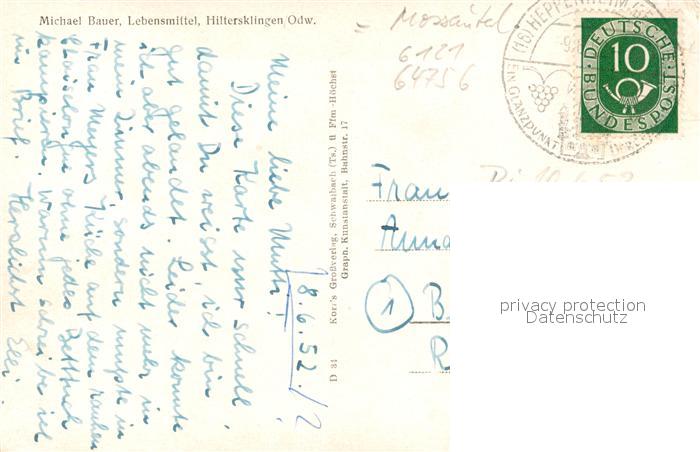 Michael Bauer, Lebensmittel, Hiltersklingen/Odw.
Mossautal
6121
64756
(16) HEPPENHEIM
EIN GLANZPUNKT
DEUTSCHE
10
BUNDESPOST
8.6.52./2
Meine liebe Mutti!
Diese Karte nur schnell
damit Du weisst, ich bin
gut gelandet. Leider konnte
ich aber abends nicht mehr in
mein Zimmer sondern musste in
Frau Meyers Küche auf dem rauhen
ohne jedes Betttuch
kampieren. Warum schreibe ich
im Brief. Herzlichst Elli.
D 34 Korr's Großverlag, Schwalbach (Ts.) ü Ffm-Höchst
Graph. Kunstanstalt, Bahnstr. 17
Frau
Anna
1 B
R
privacy protection
Datenschutz